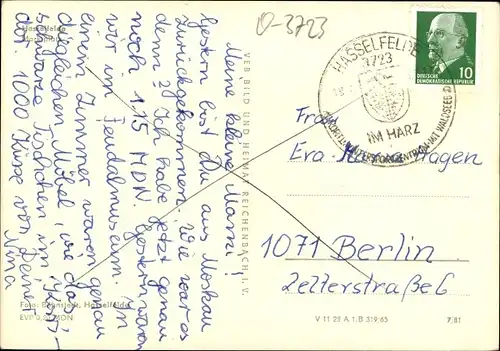 O-3723
Hasselfelde
Meine kleine Mami!
Gestern bist Du aus Moskau
zurückgekommen. Wie war es
denn? Ich habe jetzt genau
noch 1,15 MDN. Gestern waren
wir im Feudalmuseum. In
einem Zimmer waren genau
dieselben Möbel, wie das
schwarze Tischchen im
1000 Küsse von Deiner
Nina
VEB BILD UND HEIMAT REICHENBACH I. V.
HASSELFELDE
3723
IM HARZ
10
DEUTSCHE
DEMOKRATISCHE REPUBLIK
Frau
Eva
1071 Berlin
Zelterstraße 6
Foto: Hasselfelde
EVP 0,20 MDN
V 11 28 A 1. B 319/65
7/81